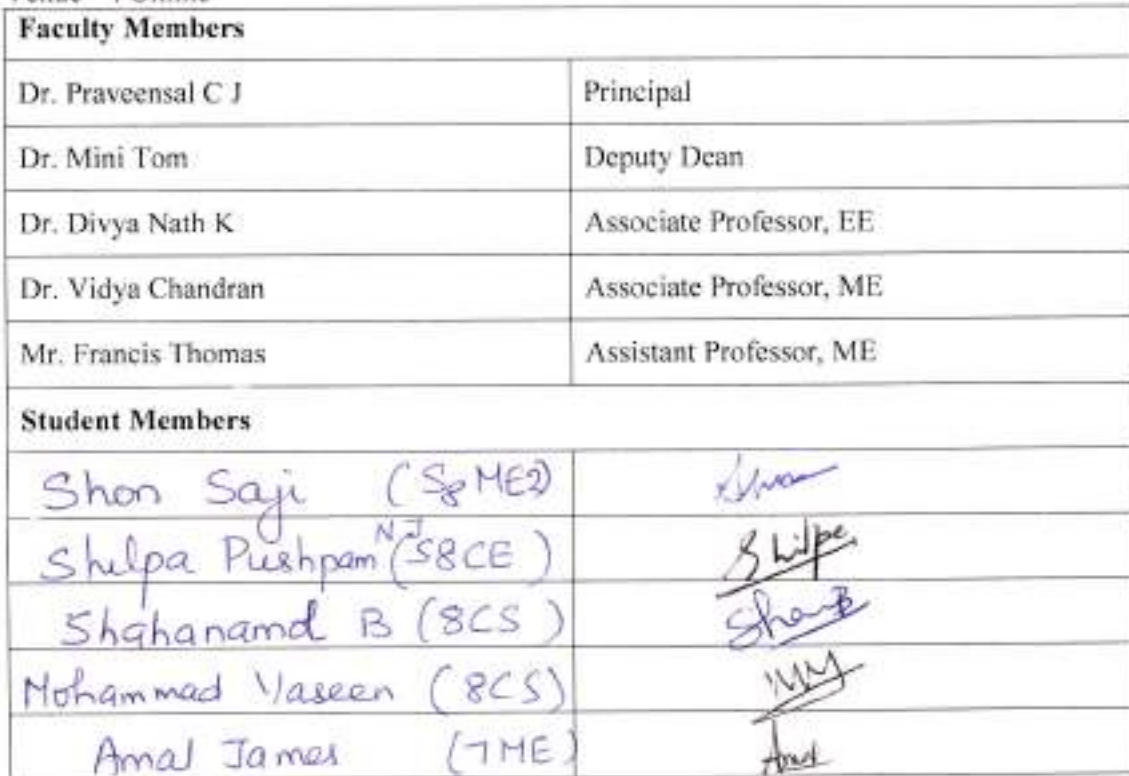 Faculty Members
Dr. Praveensal C J Principal
Dr. Mini Tom Deputy Dean
Dr. Divya Nath K Associate Professor, EE
Dr. Vidya Chandran Associate Professor, ME
Mr. Francis Thomas Assistant Professor, ME
Student Members
Shon Saji (S8 ME2)
Shilpa Pushpam N J (S8CE) Shilpa
B (8CS)
Mohammad Yaseen (8CS)
Amal James (7ME) Amal